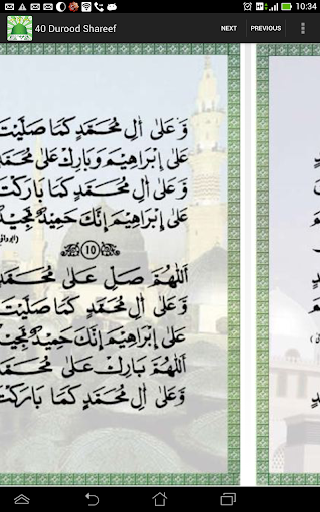 10:34
40 Durood Shareef
NEXT
PREVIOUS
وَّعَلٰى اٰلِ مُحَمَّدٍ كَمَا صَلَّيْتَ
عَلٰى اِبْرَاهِيْمَ وَبَارِكْ عَلٰى مُحَمَّدٍ
وَّعَلٰى اٰلِ مُحَمَّدٍ كَمَا بَارَكْتَ
عَلٰى اِبْرَاهِيْمَ اِنَّكَ حَمِيْدٌ مَّجِيْدٌ
(ابوداؤ
١٥
اَللّٰهُمَّ صَلِّ عَلٰى مُحَمَّدٍ
وَّعَلٰى اٰلِ مُحَمَّدٍ كَمَا صَلَّيْتَ
عَلٰى اِبْرَاهِيْمَ اِنَّكَ حَمِيْدٌ مَّجِيْدٌ
اَللّٰهُمَّ بَارِكْ عَلٰى مُحَمَّدٍ
وَّعَلٰى اٰلِ مُحَمَّدٍ كَمَا بَارَكْتَ